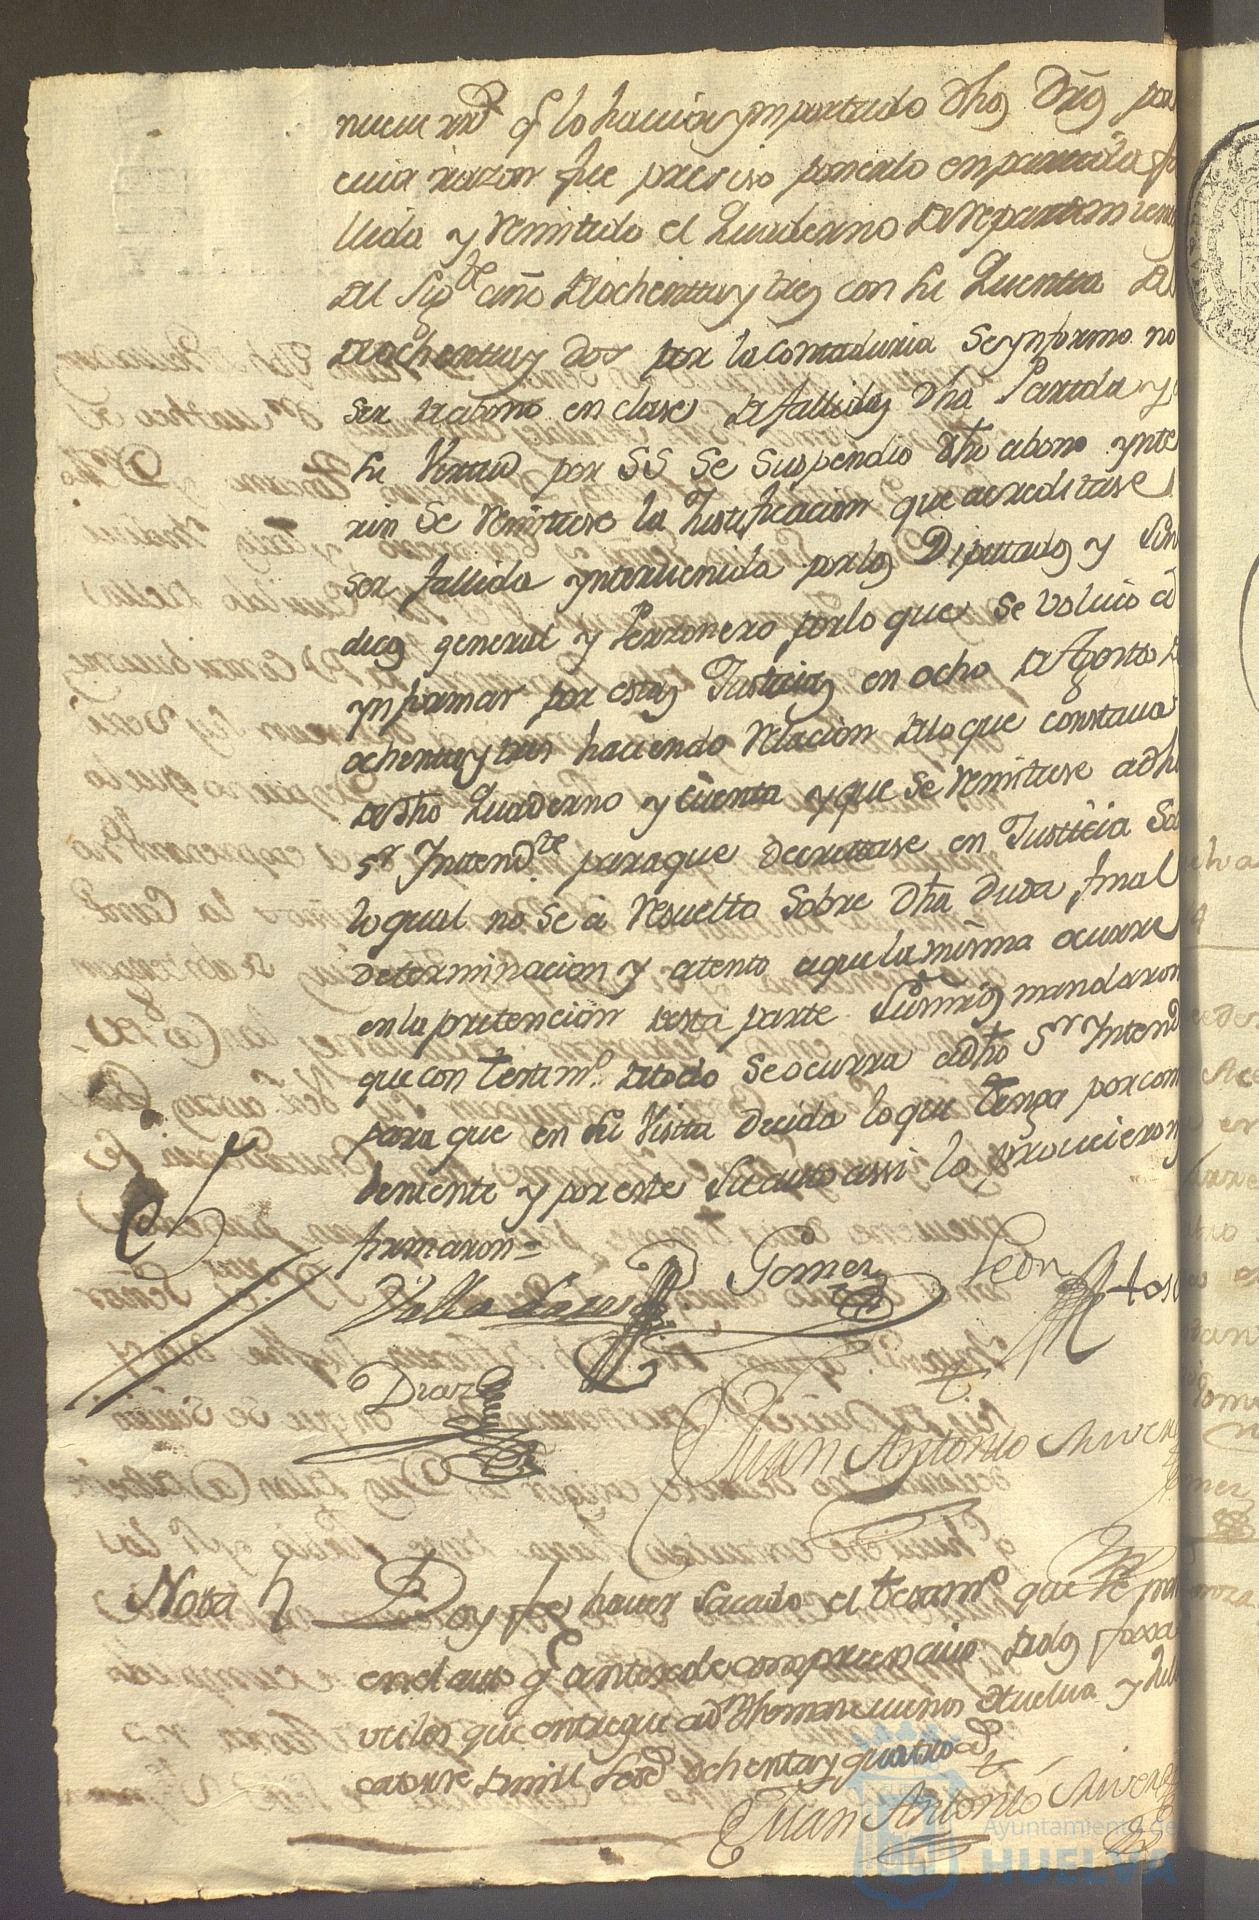 nueue rrs. q lo hauian ymportado dhos Dros por
cuia razon fue preciso ponerlo en partida fa
llida y remitido el Quaderno de repartimien
del sigte. año de ochenta y tres con la Quenta del
de ochenta y dos por la contaduria se ynformo no
ser de abono en clase de fallidas dha Partida y
su Virtud por SS se suspendio dho abono ynte
rin se remitiese la Justificacion que acreditase
ser fallida ynteruenida por los Diputados y Sin
dicos general y Perzonero por lo que se voluio a
ynformar por estas Justicias en ocho de Agosto de
ochenta y tres haciendo relacion de lo que constaua
de dho Quaderno y cuenta y que se remitiese a dho
sr. Intendte. para que decretase en Justicia So
lo qual no se a resuelto sobre dha duda final
determinacion y atento a que la misma ocurre
en la pretencion desta parte Sus mrds mandaron
que con testimo. de todo se ocurra a dho Sr. Intend
para que en su Vista decida lo que tenga por con
beniente y por este su auto assi lo proueieron
firmaron=
Gomez León
Diaz
Juan Antonio
Nota Doy fee hauer sacado el testimo. que se pre
en el auto q antesede comprencivo de los
utiles que entregue a dn. Thoma Huelua y Jul
catorse de mill setesos. ochenta y quatro as.
Juan Antonio
Ayuntamiento de
HUELVA